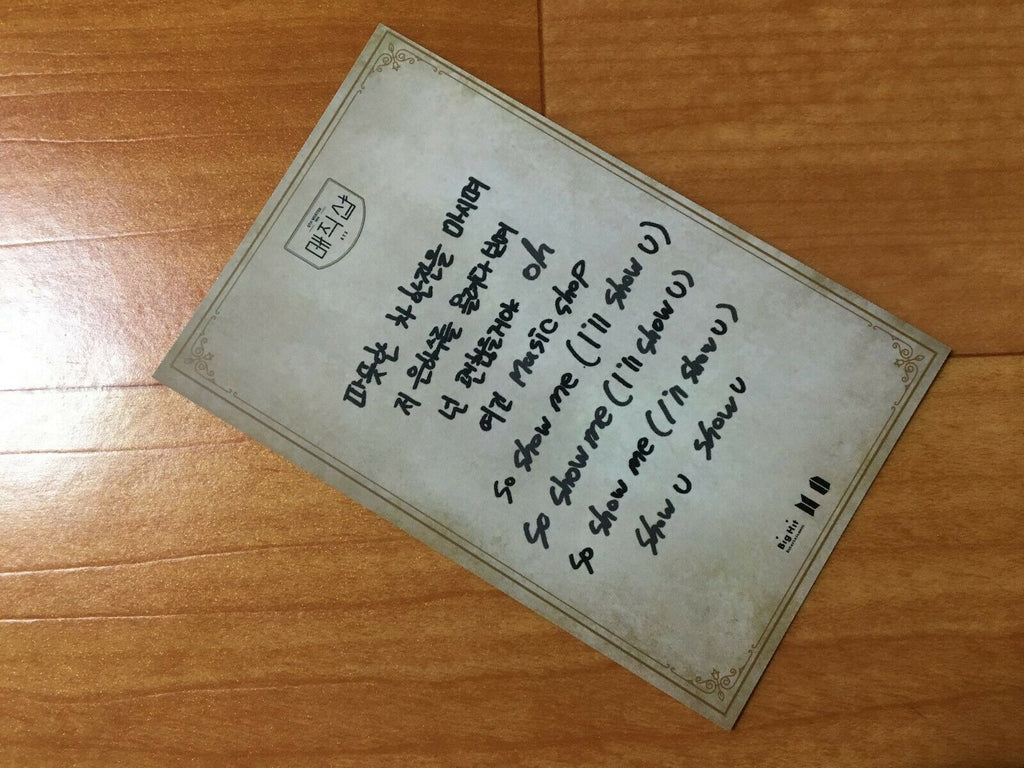 매직샵
따뜻한 차 한잔을 마시며
저 은하수를 올려다 보며
넌 괜찮을거야 oh
여긴 Magic shop
So show me (I'll show U)
So show me (I'll show U)
So show me (I'll show U)
Show U show U
Big Hit
ENTERTAINMENT